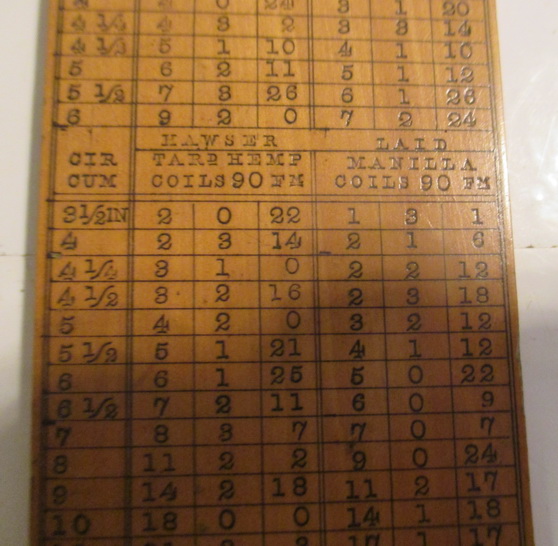 4 1/4 4 3 2 3 3 14
4 1/2 5 1 10 4 1 10
5 6 2 11 5 1 12
5 1/2 7 3 26 6 1 26
6 9 2 0 7 2 24
HAWSER LAID
CIR TARD HEMP MANILLA
CUM COILS 90 FM COILS 90 FM
3 1/2 IN 2 0 22 1 3 1
4 2 3 14 2 1 6
4 1/4 3 1 0 2 2 12
4 1/2 3 2 16 2 3 18
5 4 2 0 3 2 12
5 1/2 5 1 21 4 1 12
6 6 1 25 5 0 22
6 1/2 7 2 11 6 0 9
7 8 3 7 7 0 7
8 11 2 2 9 0 24
9 14 2 18 11 2 17
10 18 0 0 14 1 18